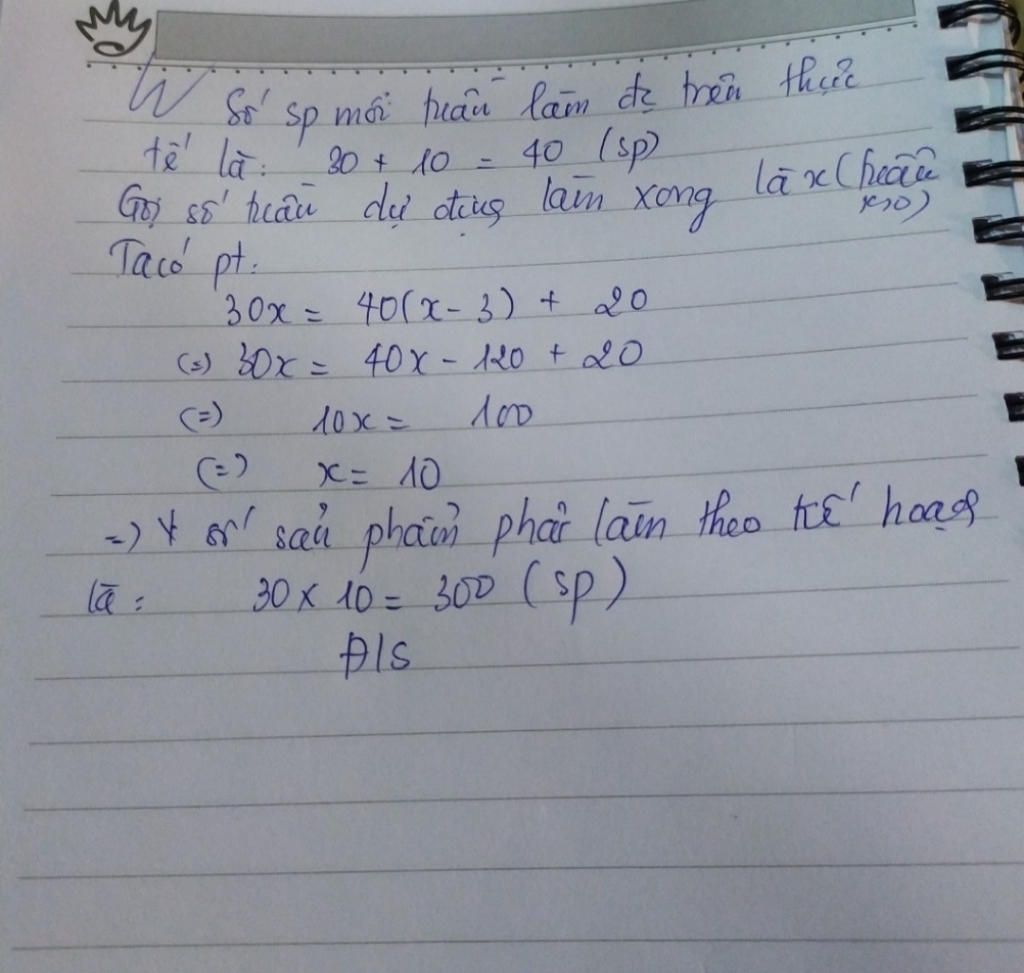 Số sp mỗi tuần làm đc trên thực
tế là: 30 + 10 = 40 (sp)
Gọi số tuần dự định làm xong là x (tuần
x>0)
Ta có pt:
30x = 40(x - 3) + 20
(=) 30x = 40x - 120 + 20
(=) 10x = 100
(=) x = 10
=) số sản phẩm phải làm theo kế hoạch
là: 30 x 10 = 300 (sp)
Đ/S